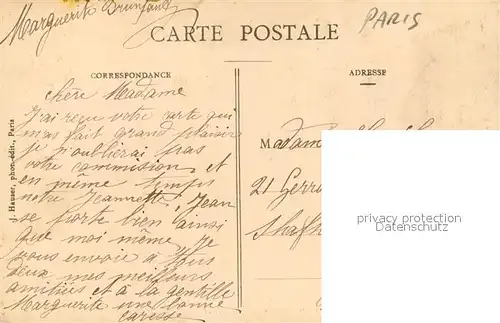 Marguerite Brunfaut
PARIS
CARTE POSTALE
CORRESPONDANCE
ADRESSE
chère Madame
J'ai reçu votre carte qui
m'as fait grand plaisir
je n'oublierai pas
votre commission et
en même temps
notre Jeannette, Jean
se porte bien ainsi
que moi même. Je
vous envoie à tous
deux mes meilleurs
amitiées et à la gentille
Marguerite une bonne
caresse
J. Hauser, phot.-édit., Paris
Madame
21 Gerr
Shafh
privacy protection
Datenschutz